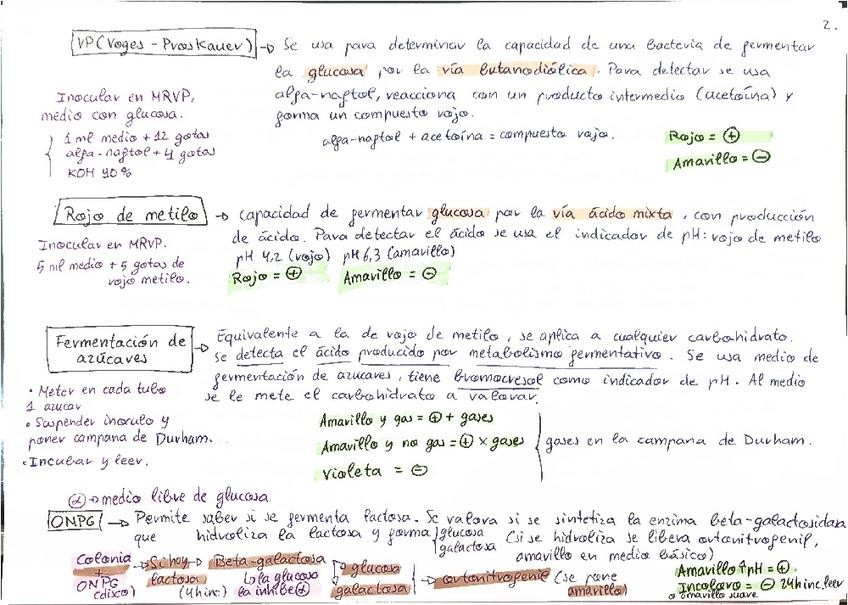 2.
VP (Voges-Proskauer) → Se usa para determinar la capacidad de una bacteria de fermentar
la glucosa por la vía butanodiólica. Para detectar se usa
alfa-naftol, reacciona con un producto intermedio (acetoína) y
forma un compuesto rojo.
alfa-naftol + acetoína = compuesto rojo.
Rojo = ⊕
Amarillo = ⊖
Inocular en MRVP,
medio con glucosa.
1 ml medio + 12 gotas
alfa-naftol + 4 gotas
KOH 40%
Rojo de metilo → capacidad de fermentar glucosa por la vía ácido mixta, con producción
de ácido. Para detectar el ácido se usa el indicador de pH: rojo de metilo
pH 4,2 (rojo) pH 6,3 (amarillo)
Rojo = ⊕ Amarillo = ⊖
Inocular en MRVP.
5 ml medio + 5 gotas de
rojo metilo.
Fermentación de
azúcares
→ Equivalente a la de rojo de metilo, se aplica a cualquier carbohidrato.
Se detecta el ácido producido por metabolismo fermentativo. Se usa medio de
fermentación de azucares, tiene bromocresol como indicador de pH. Al medio
se le mete el carbohidrato a valorar.
• Meter en cada tubo
1 azucar
• Suspender inoculo y
poner campana de Durham.
• Incubar y leer.
Amarillo y gas = ⊕ + gases
Amarillo y no gas = ⊕ × gases
Violeta = ⊖
gases en la campana de Durham.
→ medio libre de glucosa
ONPG → Permite saber si se fermenta lactosa. Se valora si se sintetiza la enzima beta-galactosidasa
que hidroliza la lactosa y forma glucosa
galactosa
(si se hidroliza se libera ortonitrofenil,
amarillo en medio básico)
Colonia
+
ONPG
(disco)
→ Si hay
lactosa
(4h inc.)
→ Beta-galactosa
↳ la glucosa
la inhibe
glucosa
galactosa
→ ortonitrofenil (se pone
amarillo)
Amarillo ↑pH = ⊕
Incoloro = ⊖ 24h inc. leer
o amarillo suave